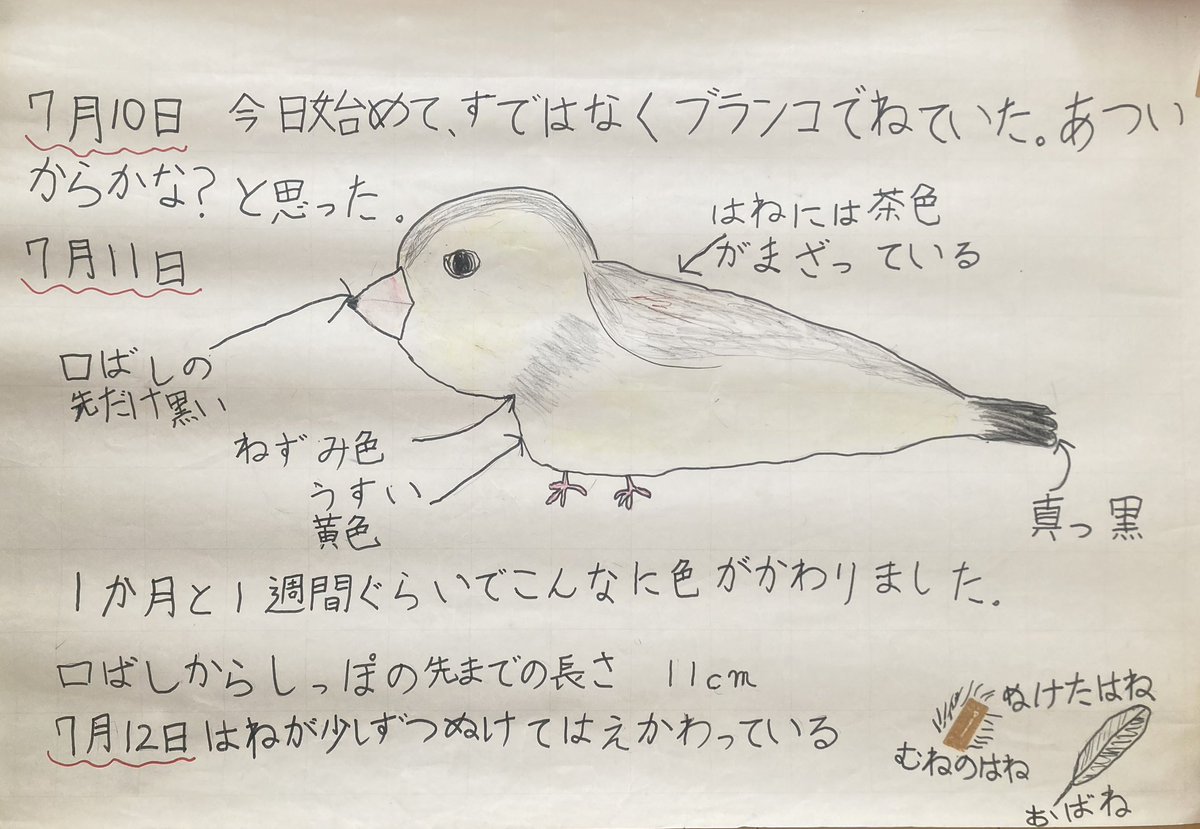 7月10日 今日始めて、すではなくブランコでねていた。あつい
からかな？と思った。
7月11日
はねには茶色
がまざっている
口ばしの
先だけ黒い
ねずみ色
うすい
黄色
真っ黒
1か月と1週間ぐらいでこんなに色がかわりました。
口ばしからしっぽの先までの長さ 11cm
7月12日はねが少しずつぬけてはえかわっている
ぬけたはね
むねのはね
おばね